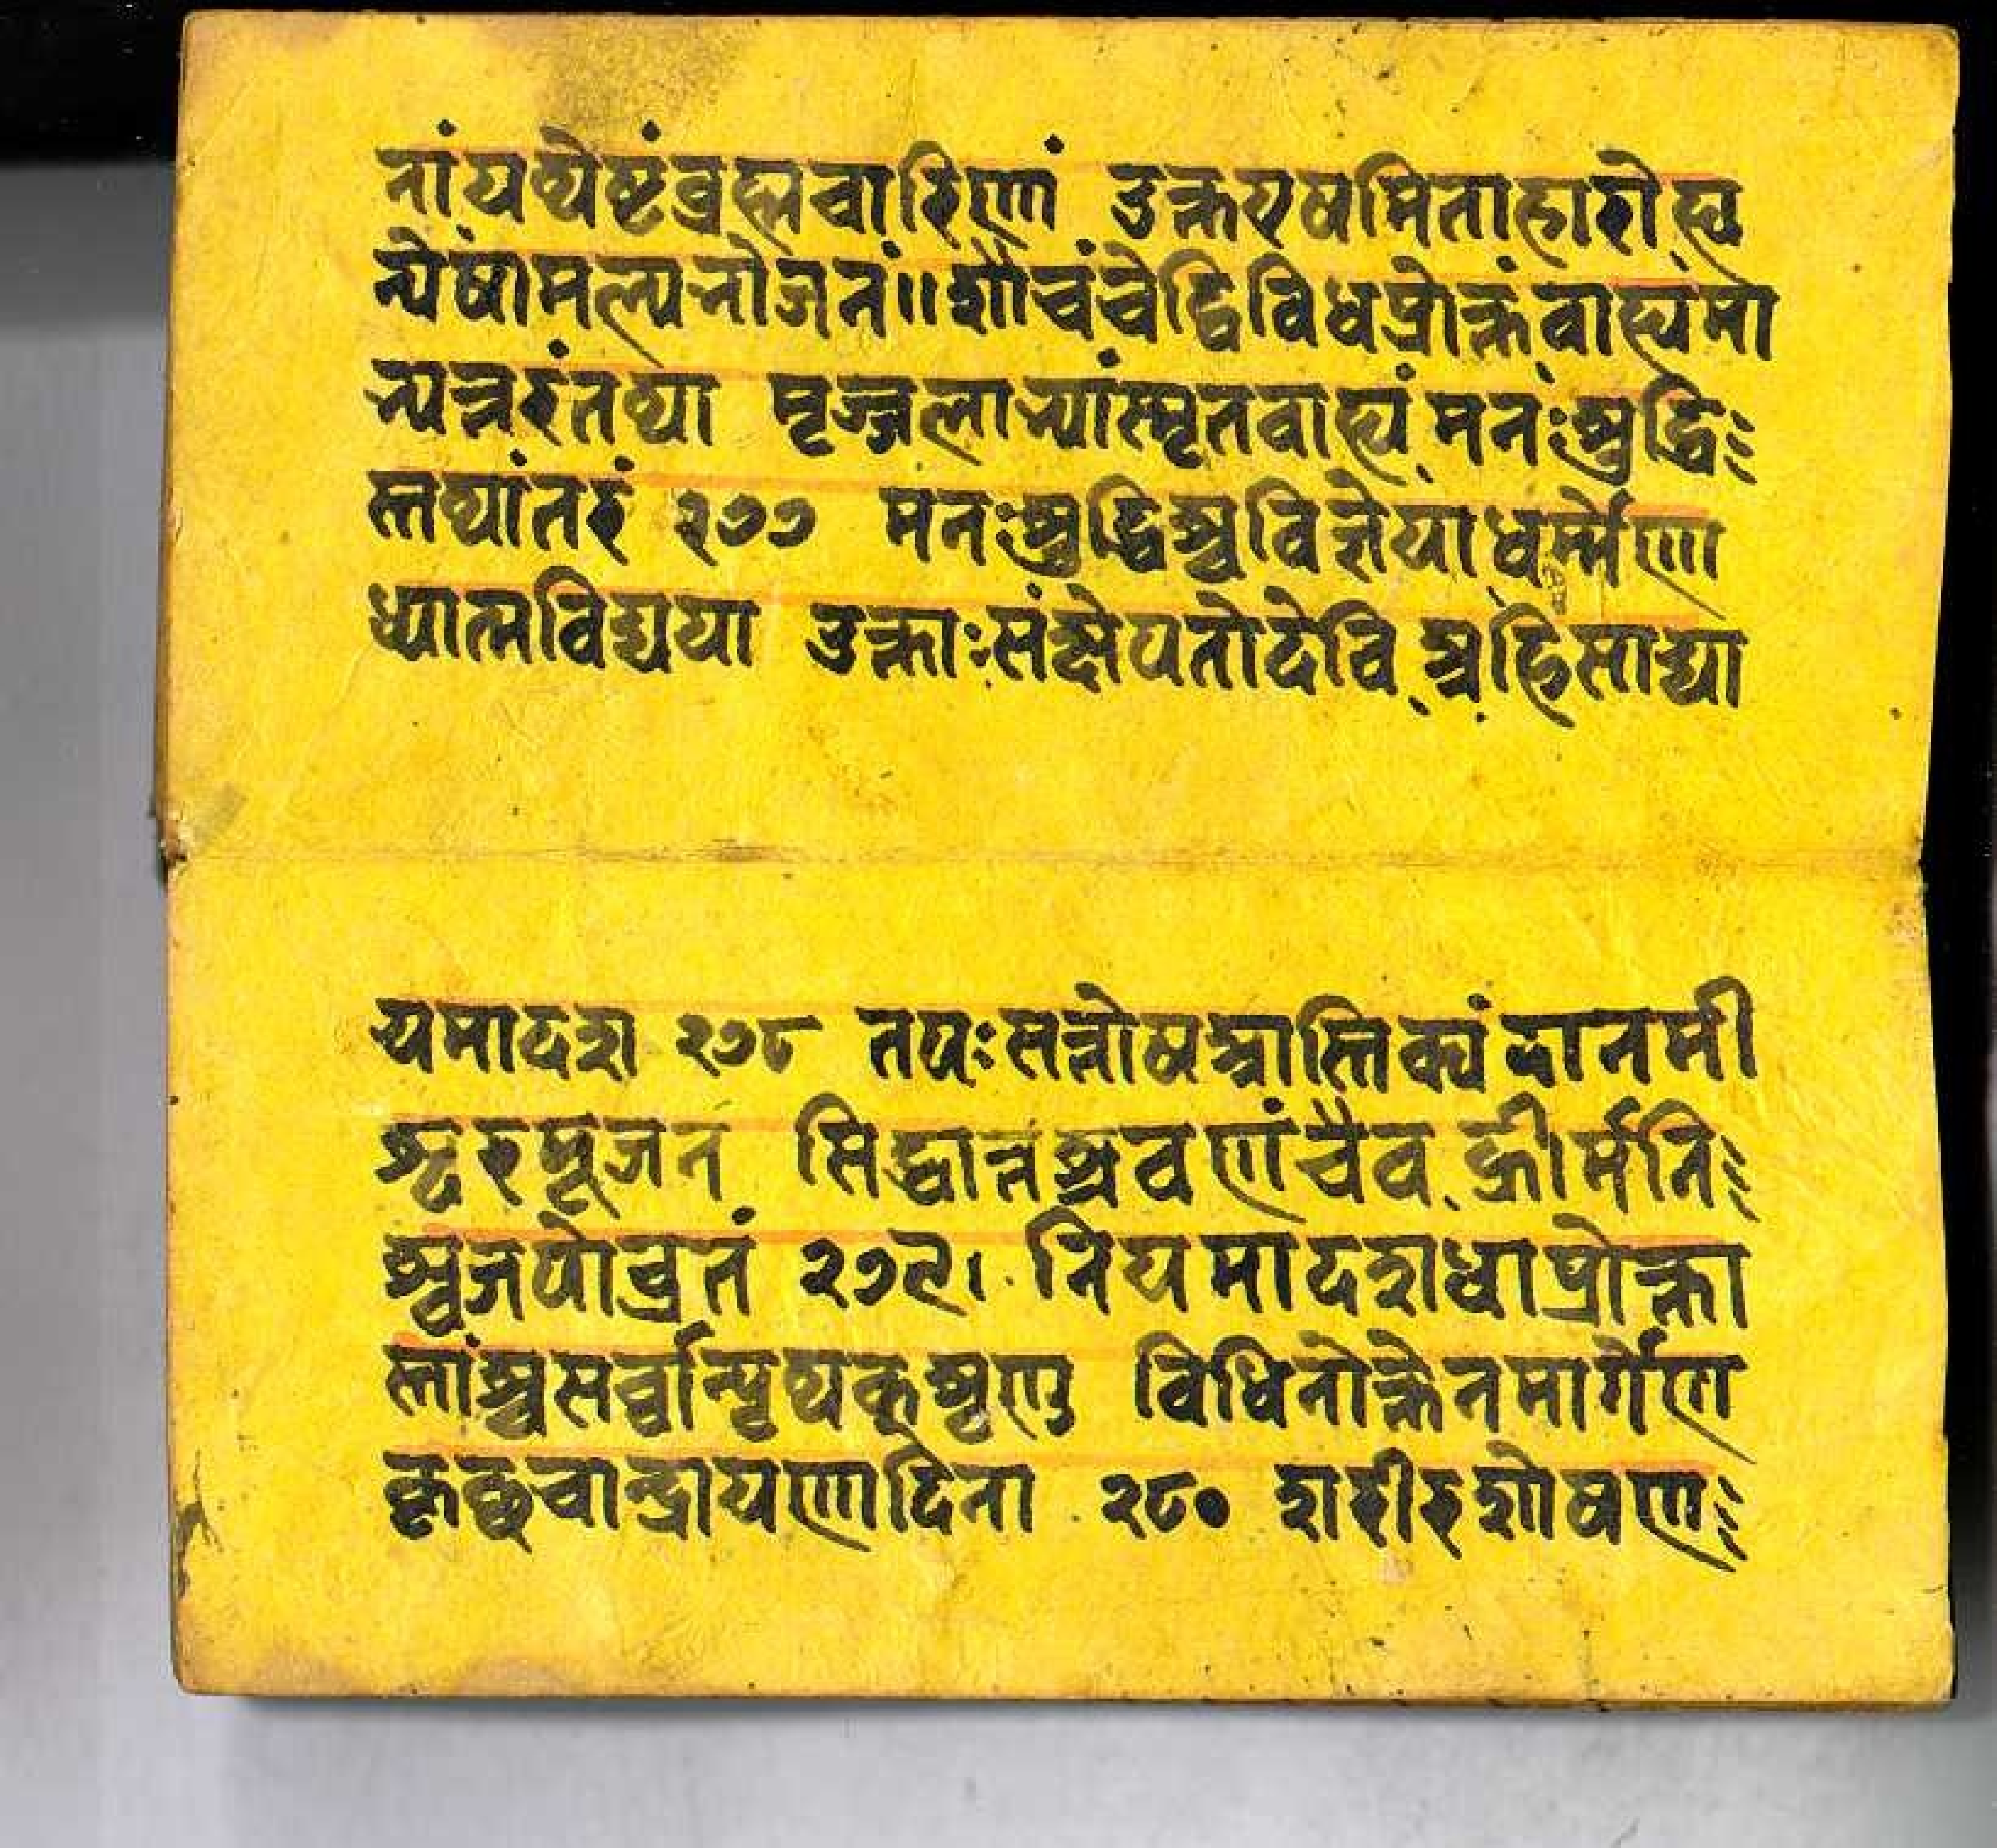 नांयथेष्टंब्रह्मचारिणां उक्तरषमिताहारोह्य
न्येषामल्पभोजनं॥शौचंचेद्विविधप्रोक्तंवाह्यमा
भ्यन्तरंतथा मृज्जलाभ्यांस्मृतवाह्यं मनःशुद्धिः
स्तथांतरं २७७ मनःशुद्धिश्चविज्ञेयाधर्म्मेणा
ध्यात्मविद्यया उक्ताःसंक्षेपतोदेवि अहिंसाद्या
यमादश २७८ तपःसन्तोषआस्तिक्यं दानमी
श्वरपूजनं सिद्धान्तश्रवणंचैव ह्रीर्मतिः
श्चजपोव्रतं २७९। नियमादशधाप्रोक्ता
स्तांश्चसर्व्वान्पृथक्शृणु विधिनोक्तेनमार्गेण
कृछ्रचान्द्रायणादिना २८० शरीरशोषणः